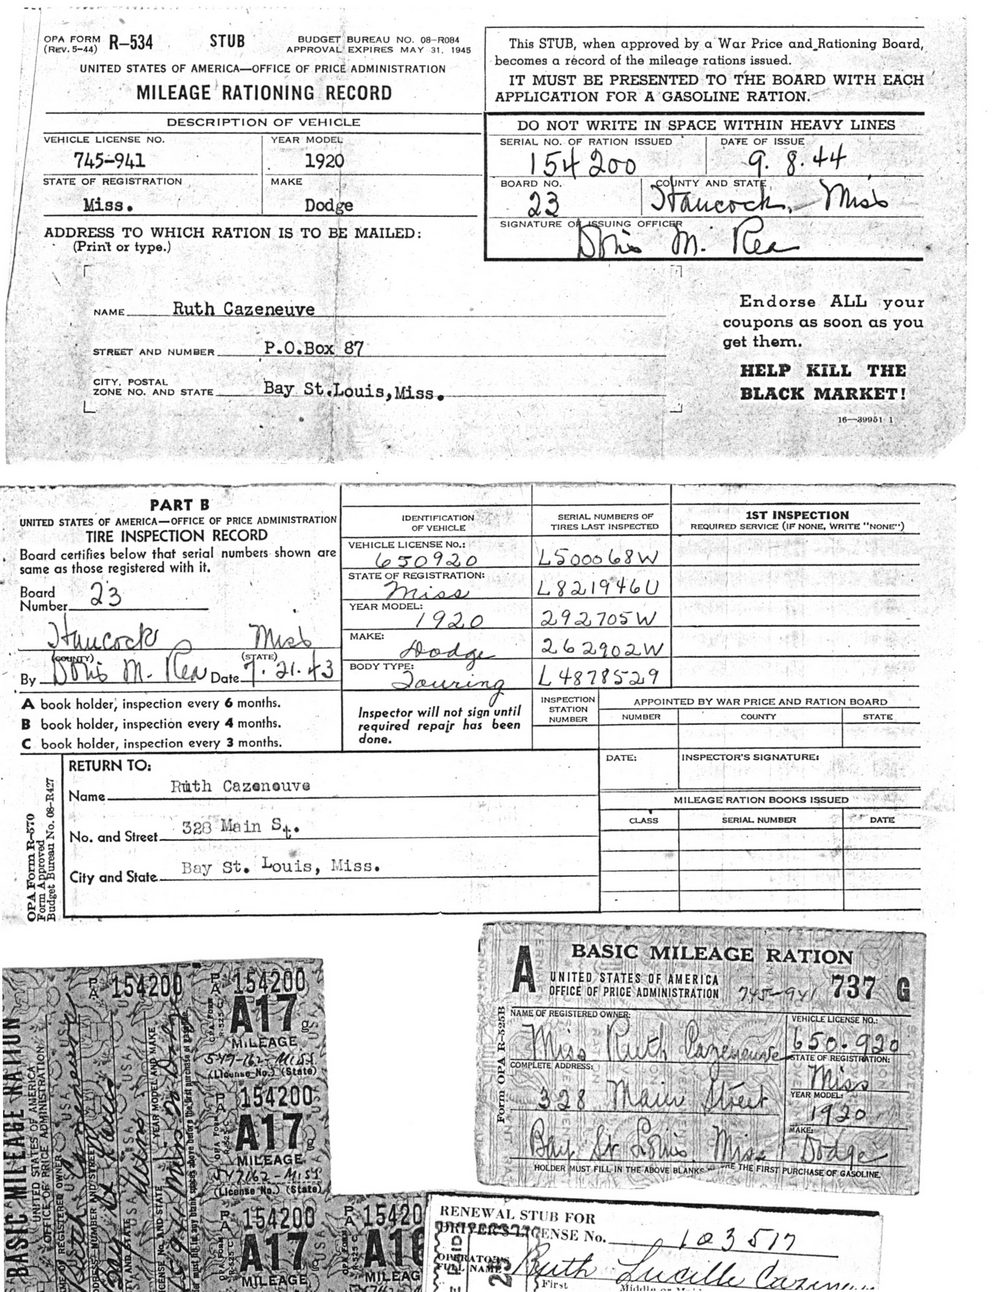 OPA FORM R-534 STUB BUDGET BUREAU NO. 08-R084
(REV. 5-44) APPROVAL EXPIRES MAY 31, 1945
UNITED STATES OF AMERICA—OFFICE OF PRICE ADMINISTRATION
MILEAGE RATIONING RECORD
DESCRIPTION OF VEHICLE
VEHICLE LICENSE NO. YEAR MODEL
745-941 1920
STATE OF REGISTRATION MAKE
Miss. Dodge
ADDRESS TO WHICH RATION IS TO BE MAILED:
(Print or type.)
NAME Ruth Cazeneuve
STREET AND NUMBER P.O.Box 87
CITY, POSTAL
ZONE NO. AND STATE Bay St.Louis,Miss.
This STUB, when approved by a War Price and Rationing Board,
becomes a record of the mileage rations issued.
IT MUST BE PRESENTED TO THE BOARD WITH EACH
APPLICATION FOR A GASOLINE RATION.
DO NOT WRITE IN SPACE WITHIN HEAVY LINES
SERIAL NO. OF RATION ISSUED DATE OF ISSUE
154200 9.8.44
BOARD NO. COUNTY AND STATE
23 Hancock, Miss
SIGNATURE OF ISSUING OFFICER
Doris M. Rea
Endorse ALL your
coupons as soon as you
get them.
HELP KILL THE
BLACK MARKET!
16—39951 1
PART B
UNITED STATES OF AMERICA—OFFICE OF PRICE ADMINISTRATION
TIRE INSPECTION RECORD
Board certifies below that serial numbers shown are
same as those registered with it.
Board
Number 23
Hancock Miss
(COUNTY) (STATE)
By Doris M. Rea Date 7.21.43
A book holder, inspection every 6 months.
B book holder, inspection every 4 months.
C book holder, inspection every 3 months.
IDENTIFICATION
OF VEHICLE
VEHICLE LICENSE NO.:
650920
STATE OF REGISTRATION:
Miss
YEAR MODEL:
1920
MAKE:
Dodge
BODY TYPE:
Touring
Inspector will not sign until
required repair has been
done.
SERIAL NUMBERS OF
TIRES LAST INSPECTED
L500068W
L821946U
292705W
262902W
L4878529
1ST INSPECTION
REQUIRED SERVICE (IF NONE, WRITE "NONE")
INSPECTION
STATION
NUMBER
APPOINTED BY WAR PRICE AND RATION BOARD
NUMBER COUNTY STATE
DATE: INSPECTOR'S SIGNATURE:
MILEAGE RATION BOOKS ISSUED
CLASS SERIAL NUMBER DATE
OPA Form R-570
Form Approved
Budget Bureau No. 08-R427
RETURN TO:
Name Ruth Cazeneuve
No. and Street 328 Main St.
City and State Bay St. Louis, Miss.
A BASIC MILEAGE RATION
UNITED STATES OF AMERICA
OFFICE OF PRICE ADMINISTRATION 745-941 737 G
Form OPA R-525B
NAME OF REGISTERED OWNER:
Miss Ruth Cazeneuve
COMPLETE ADDRESS:
328 Main Street
Bay St. Louis Miss
VEHICLE LICENSE NO.:
650-920
STATE OF REGISTRATION:
Miss
YEAR MODEL:
1920
MAKE:
Dodge
HOLDER MUST FILL IN THE ABOVE BLANKS THE FIRST PURCHASE OF GASOLINE
BASIC MILEAGE RATION
UNITED STATES OF AMERICA
OFFICE OF PRICE ADMINISTRATION
154200
154200
A17
MILEAGE
547-162-Miss
(License No.) (State)
154200
A17
MILEAGE
547162-Miss
(License No.) (State)
154200
A17
MILEAGE
15420
MILEAGE
RENEWAL STUB FOR
DRIVERS LICENSE No. 103517
OPERATOR'S
FULL NAME Ruth Lucille
First